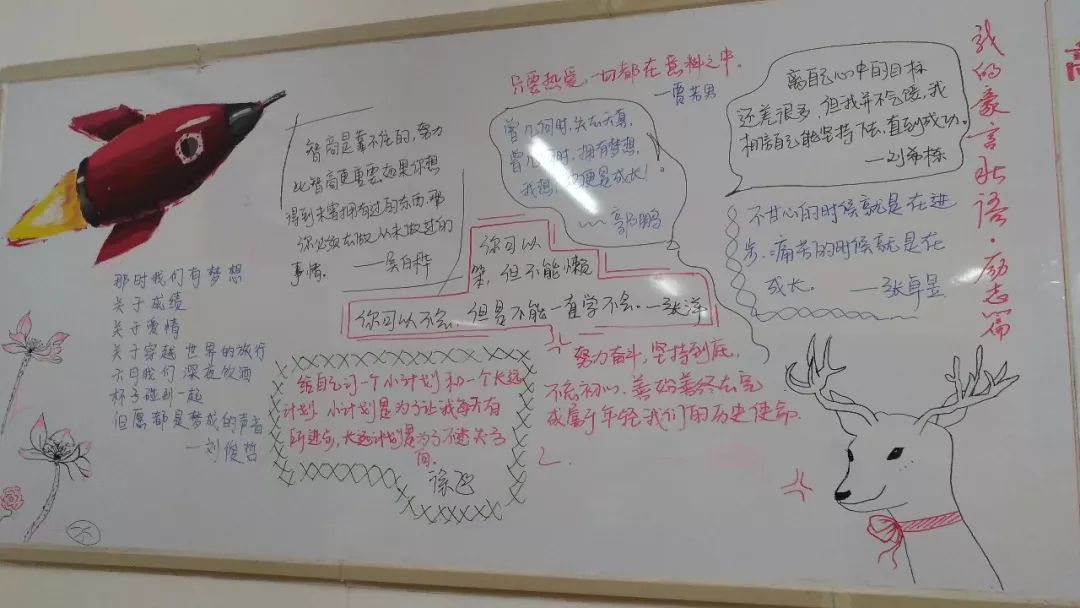 我的豪言壮语·励志篇
只要热爱,一切都在意料之中。
—贾芳男
智商是靠不住的,努力
比智商更重要,如果你想
得到未曾拥有过的东西,那
你必须去做从未做过的
事情。 —吴白桦
曾几何时,失去天真,
曾几何时,拥有梦想,
我想,这便是成长!
—郭鹏
离自己心中的目标
还差很多,但我并不气馁,我
相信自己能坚持下去,直到成功。
—刘希栋
不甘心的时候就是在进
步,痛苦的时候就是在
成长。 —张卓昱
你可以
笨,但不能懒
你可以不会,但是不能一直学不会。—张洋
那时我们有梦想
关于成绩
关于爱情
关于穿越世界的旅行
今日我们深夜饮酒
杯子碰到一起
但愿都是梦成的声音
—刘俊哲
给自己订一个小计划和一个长远
计划,小计划是为了让我每天有
所进步,长远计划是为了不迷失方
向。
徐飞
努力奋斗,坚持到底。
不忘初心,善始善终去完
成属于年轻我们的历史使命